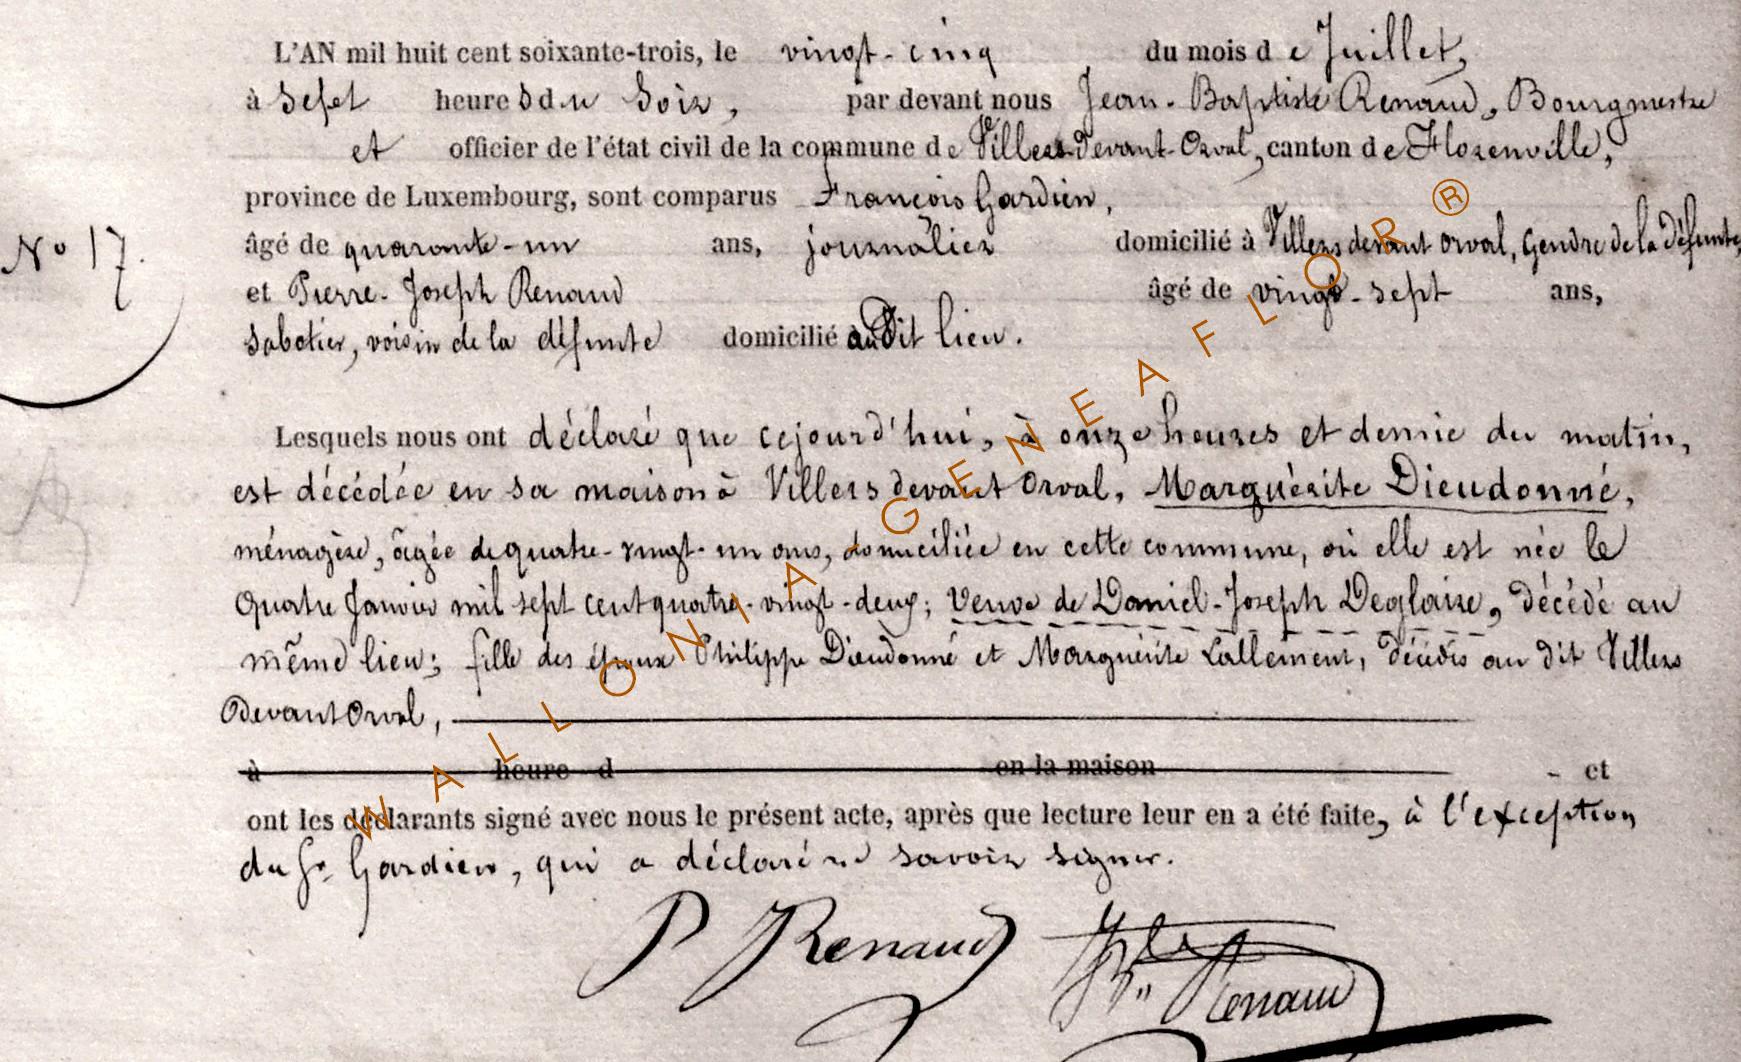 L'AN mil huit cent soixante-trois, le vingt-cinq du mois de Juillet,
à Sept heures du Soir, par devant nous Jean-Baptiste Renaud, Bourgmestre
et officier de l'état civil de la commune de Villers devant-Orval, canton de Florenville,
province de Luxembourg, sont comparus François Gardien,
N° 17.
âgé de quarante-un ans, journalier domicilié à Villers devant Orval, Gendre de la défunte,
et Pierre-Joseph Renaud âgé de vingt-sept ans,
Sabotier, voisin de la défunte domicilié audit lieu.
Lesquels nous ont déclaré que cejourd'hui, à onze heures et demie du matin,
est décédée en sa maison à Villers devant Orval, Marguérite Dieudonné,
ménagère, âgée de quatre-vingt-un ans, domiciliée en cette commune, où elle est née le
Quatre Janvier mil sept cent quatre-vingt-deux; Veuve de Daniel-Joseph Deglaire, décédé au
même lieu; fille des époux Philippe Dieudonné et Marguérite Lallement, décédés au dit Villers
Devant Orval,
à heure d en la maison et
ont les déclarants signé avec nous le présent acte, après que lecture leur en a été faite, à l'exception
du Sr. Gardien, qui a déclaré ne savoir signer.
P Renaud Renaud
WALLONIA-GENEAFLOR ®